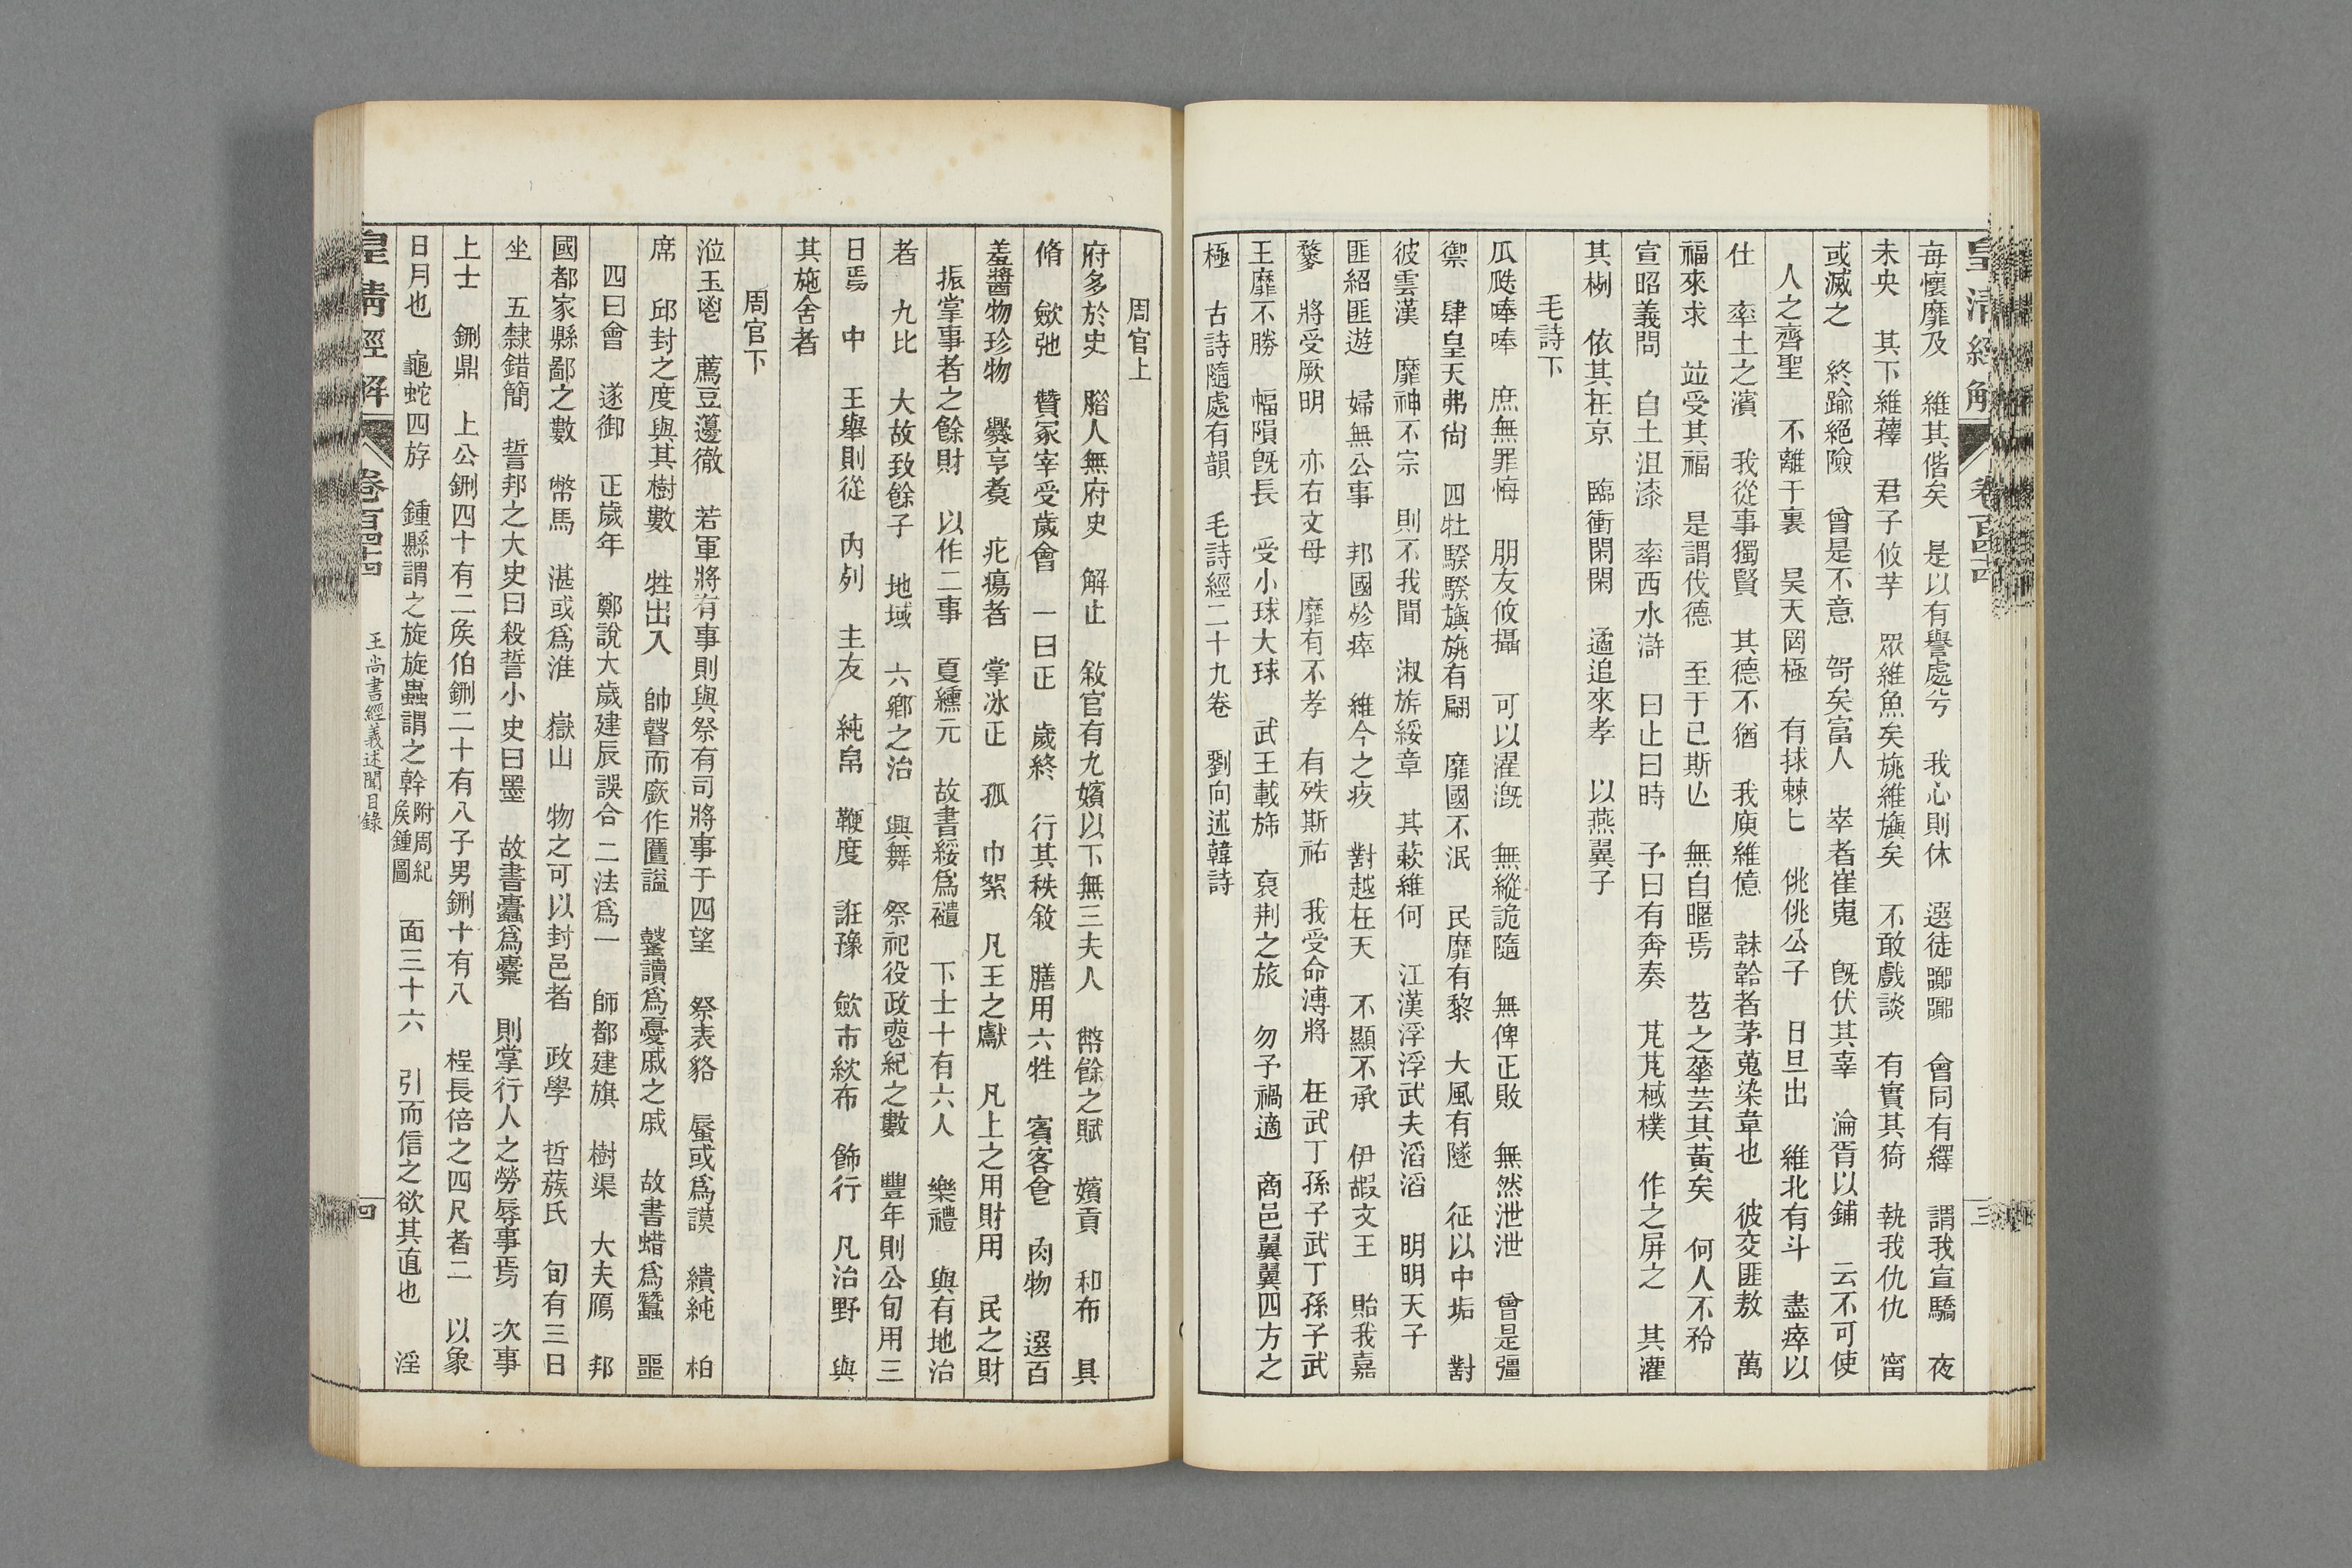 皇清經解
卷百四十
三
每懷靡及　維其偕矣　是以有譽處兮　我心則休　選徒嚻嚻　會同有繹　謂我宣驕　夜
未央　其下維蘀　君子攸芋　眾維魚矣旐維旟矣　不敢戲談　有實其猗　執我仇仇　甯
或滅之　終踰絕險　曾是不意　哿矣富人　崒者崔嵬　旣伏其辜　淪胥以鋪　云不可使
人之齊聖　不離于裏　昊天罔極　有捄棘匕　佻佻公子　日旦出　維北有斗　盡瘁以
仕　率土之濱　我從事獨賢　其德不猶　我庾維億　韎韐者茅蒐染韋也　彼交匪敖　萬
福來求　竝受其福　是謂伐德　至于己斯亾　無自暱焉　苕之蕐芸其黃矣　何人不矜
宣昭義問　自土沮漆　率西水滸　曰止曰時　予曰有奔奏　芃芃棫樸　作之屏之　其灌
其栵　依其在京　臨衝閑閑　遹追來孝　以燕翼子
毛詩下
瓜瓞唪唪　庶無罪悔　朋友攸攝　可以濯漑　無縱詭隨　無俾正敗　無然泄泄　曾是彊
禦　肆皇天弗尙　四牡騤騤旟旐有翩　靡國不泯　民靡有黎　大風有隧　征以中垢　對
彼雲漢　靡神不宗　則不我聞　淑旂綏章　其蔌維何　江漢浮浮武夫滔滔　明明天子
匪紹匪遊　婦無公事　邦國殄瘁　維今之疚　對越在天　不顯不承　伊嘏文王　貽我嘉
䅘　將受厥明　亦右文母　靡有不孝　有殀斯祜　我受命溥將　在武丁孫子武丁孫子武
王靡不勝　幅隕旣長　受小球大球　武王載斾　裒荆之旅　勿予禍適　商邑翼翼四方之
極　古詩隨處有韻　毛詩經二十九卷　劉向述韓詩
周官上
府多於史　腊人無府史　解止　敘官有九嬪以下無三夫人　幣餘之賦　嬪貢　和布　具
脩　斂弛　贊冢宰受歲會　一曰正　歲終　行其秩敘　膳用六牲　賓客會　肉物　選百
羞醬物珍物　爨亨煑　疕瘍者　掌冰正　孤　巾絮　凡王之獻　凡上之用財用　民之財
振掌事者之餘財　以作二事　夏纁元　故書綏爲䙡　下士十有六人　樂禮　與有地治
者　九比　大故致餘子　地域　六鄉之治　興舞　祭祀役政喪紀之數　豐年則公旬用三
日焉　中　王舉則從　內列　主友　純帛　鞭度　誑豫　斂市絘布　飾行　凡治野　與
其施舍者
周官下
涖玉鬯　薦豆籩徹　若軍將有事則與祭有司將事于四望　祭表貉　蜃或爲謨　繢純　柏
席　邱封之度與其樹數　牲出入　帥瞽而廞作匶謚　鼜讀爲憂戚之戚　故書蜡爲蠶　噩
四曰會　遂御　正歲年　鄭說大歲建辰誤合二法爲一　師都建旗　樹渠　大夫鴈　邦
國都家縣鄙之數　幣馬　湛或爲淮　嶽山　物之可以封邑者　政學　哲蔟氏　旬有三日
坐　五隸錯簡　誓邦之大史曰殺誓小史曰墨　故書櫜爲櫜　則掌行人之勞辱事焉　次事
上士　鉶鼎　上公鉶四十有二矦伯鉶二十有八子男鉶十有八　桯長倍之四尺者二　以象
日月也　龜蛇四斿　鍾縣謂之旋旋蟲謂之幹附周紀矦鍾圖　面三十六　引而信之欲其直也　淫
皇清經解
卷百四十
王尚書經義述聞目錄
四